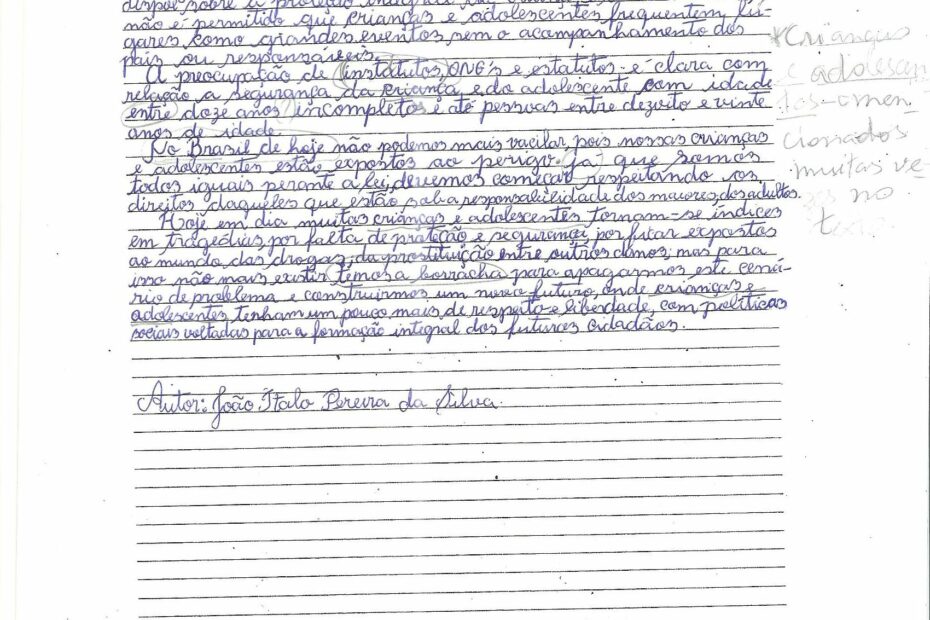 dispõe sobre a proteção integral
não é permitido que crianças e adolescentes frequentem lu-
gares como grandes eventos, sem o acompanhamento dos
pais ou responsáveis.
A preocupação de institutos, ONG's e estatutos é clara com
relação a segurança da criança e do adolescente com idade
entre doze anos incompletos e até pessoas entre dezoito e vinte
anos de idade.
No Brasil de hoje não podemos mais vacilar, pois nossas crianças
e adolescentes estão expostos ao perigo. Já que somos
todos iguais perante a lei, devemos começar respeitando os
direitos daqueles que estão sob a responsabilidade dos maiores, dos adultos.
Hoje em dia muitas crianças e adolescentes tornam-se índices
em tragédias, por falta de proteção e segurança, por ficar expostos
ao mundo, das drogas, da prostituição entre outros danos; mas para
isso não mais existir temos a borracha para apagarmos este cená-
rio de problema e construirmos um novo futuro, onde crianças e
adolescentes tenham um pouco mais de respeito e liberdade, com políticas
sociais voltadas para a formação integral dos futuros cidadãos.
Autor: João Ítalo Pereira da Silva.
*Crianças
e adolescen
tes - men
cionados
muitas ve-
zes no
texto.